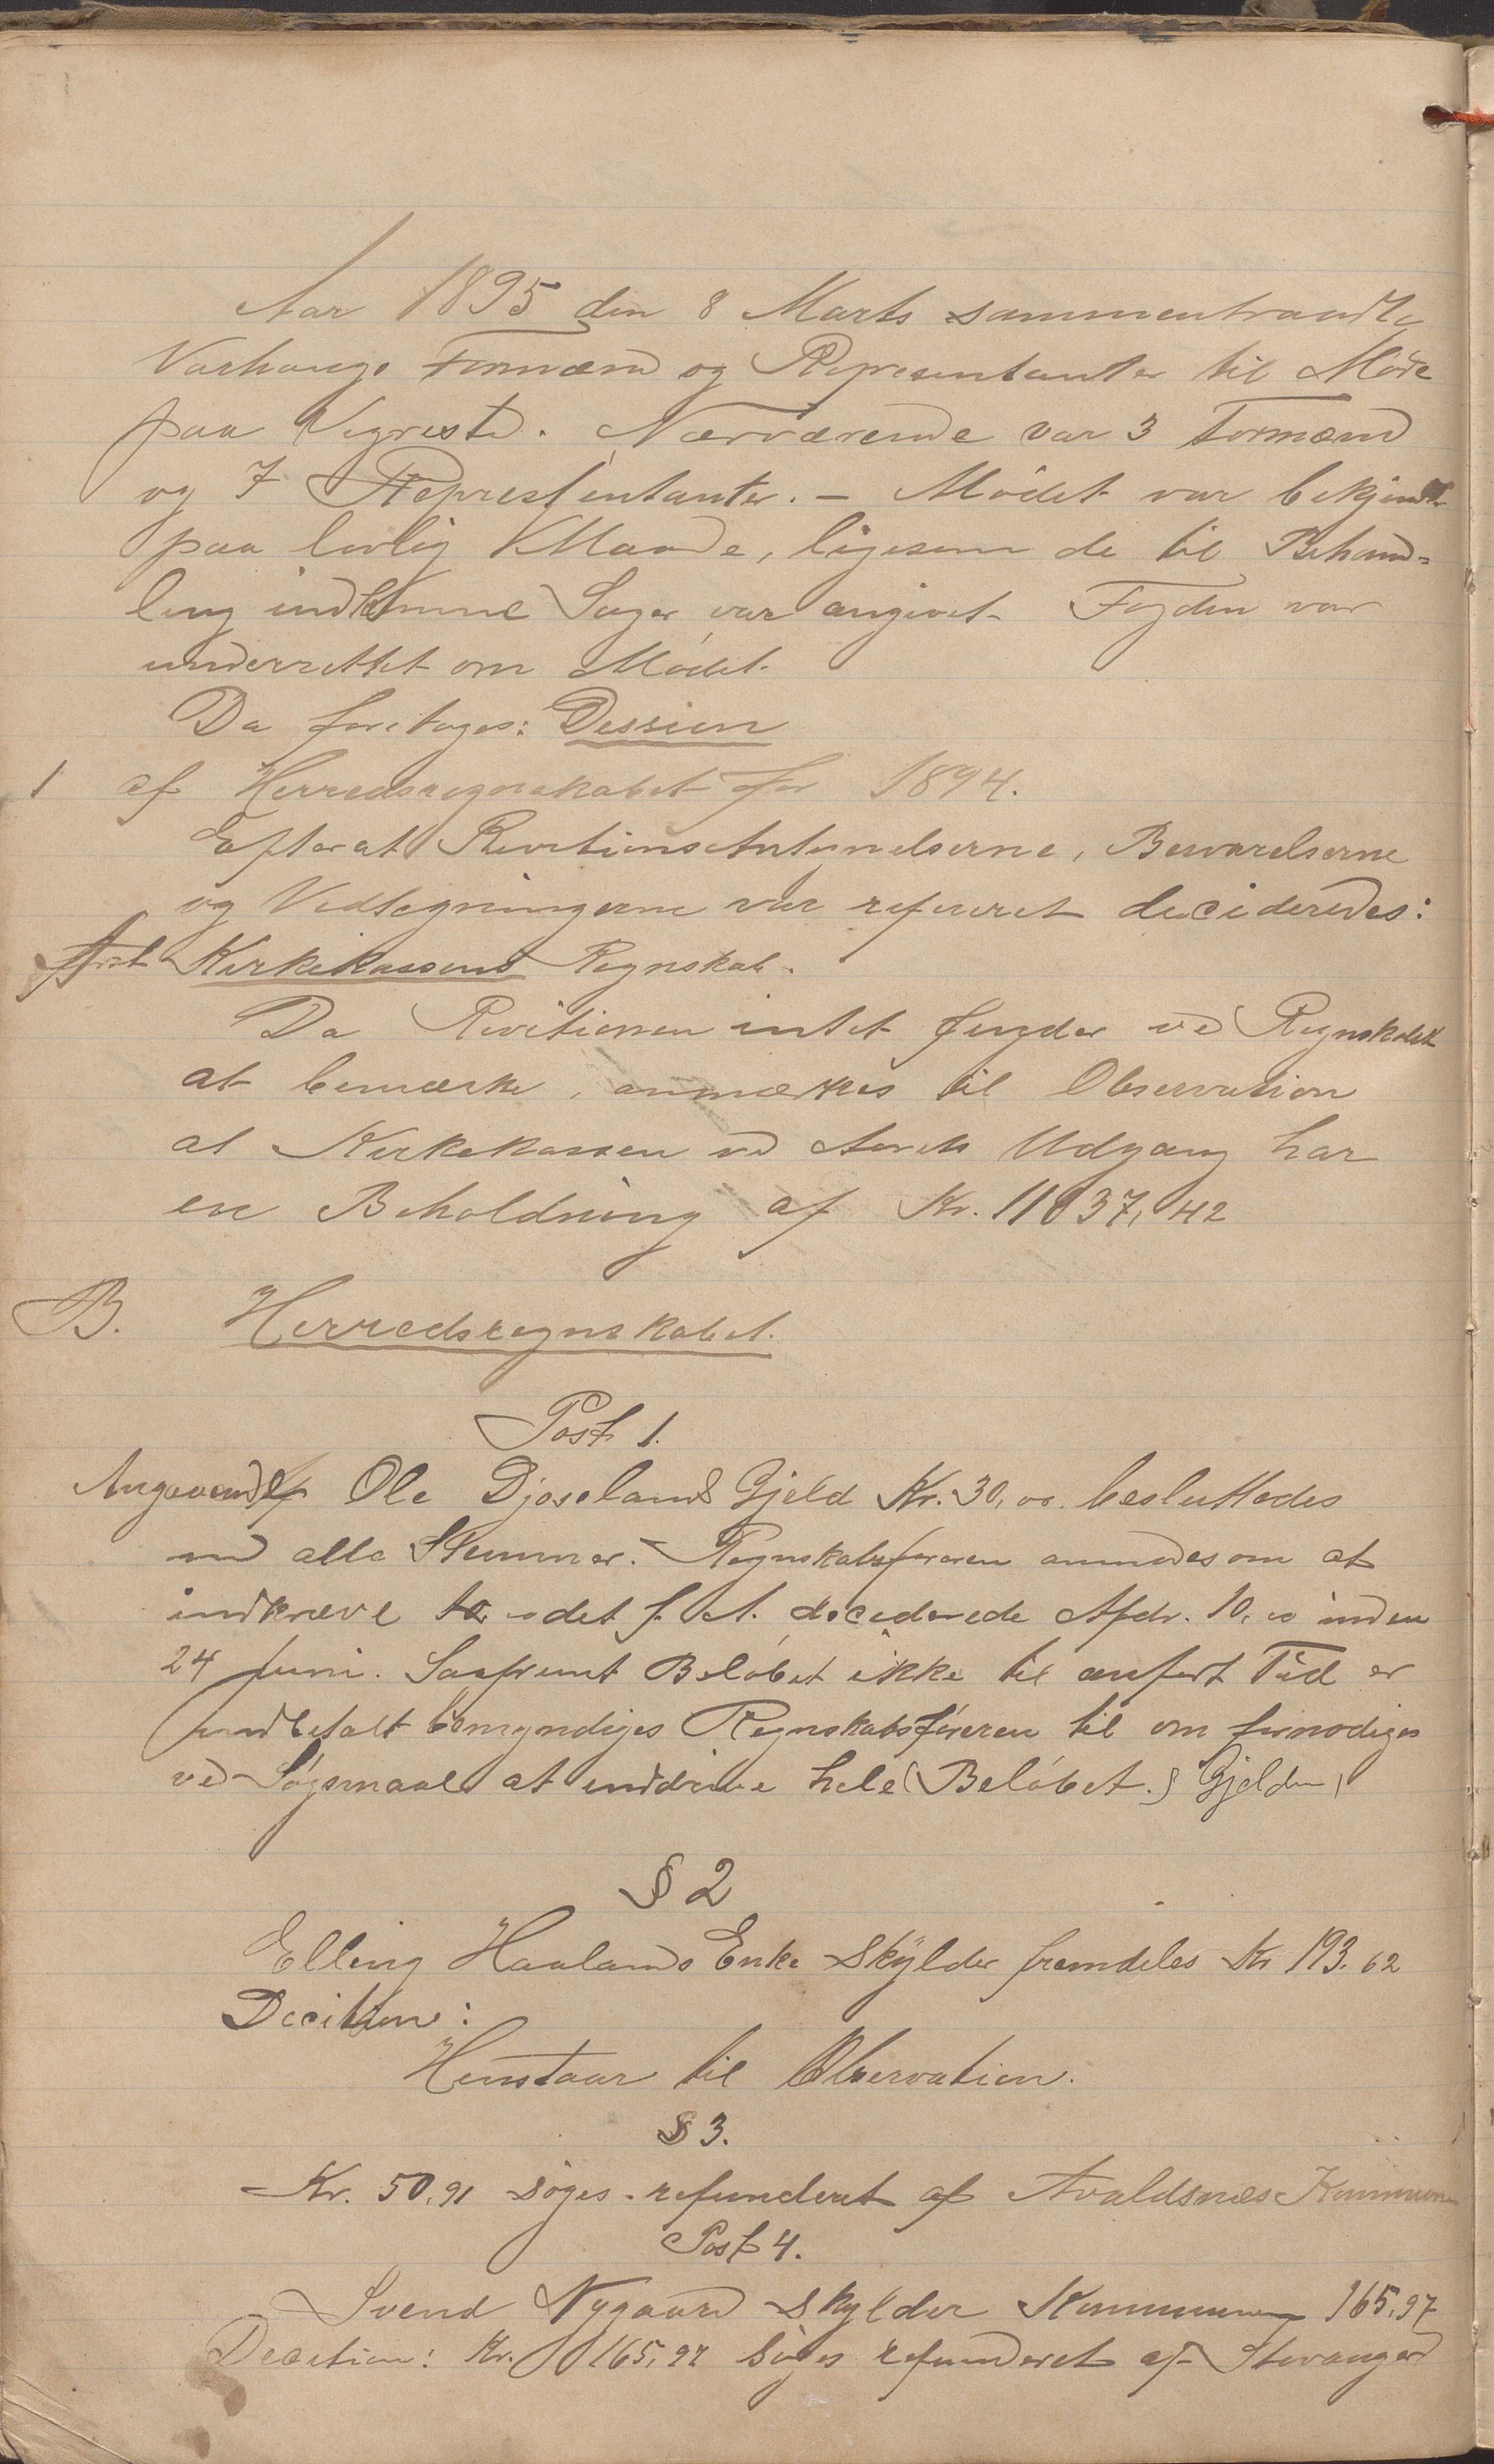 Aar 1895 den 8 Marts sammentraadte
Varhaugs Formænd og Representanter til Møde
paa Vigrestad. Nærværende var 3 Formænd
og 7 Representanter. – Mødet var bekjendt
paa lovlig Maade, ligesom de til Behand-
ling indkomne Sager var angivet. Fogden var
underrettet om Mødet.
Da foretoges: Dession
1 af Herredsregnskabet for 1894.
Efterat Revitions Antegnelserne, Besvarelserne
og Vedtegningerne var refereret decideredes:
Kirkekassens Regnskab.
Da Revitionen intet finder ved Regnskabet
at bemærke, anmærkes til Observation
at Kirkekassen ved Aarets Udgang har
en Beholdning af Kr. 11837,42
B. Herredsregnskabet.
Post 1.
Angaaende Ole Djoselands Gjeld Kr. 30,00. besluttedes
med alle Stemmer. Regnskabsføreren anmodes om at
indkræve det f. A. deciderede Afdr. 10,00 inden
24 Juni. Saafremt Beløbet ikke til anført Tid er
indbetalt bemyndiges Regnskabsføreren til om fornødiges
ved Søgsmaal at inddrive hele (Beløbet.) Gjelden
§ 2
Elling Haalands Enke skylder fremdeles Kr 193.62
Decition:
Henstaar til Observation.
§ 3.
Kr. 50,91 søges refunderet af Avaldsnes Kommune
Post 4.
Svend Nygaard skylder Kommunen 165,97
Decition: Kr. 165,97 søges refunderet af Stavanger